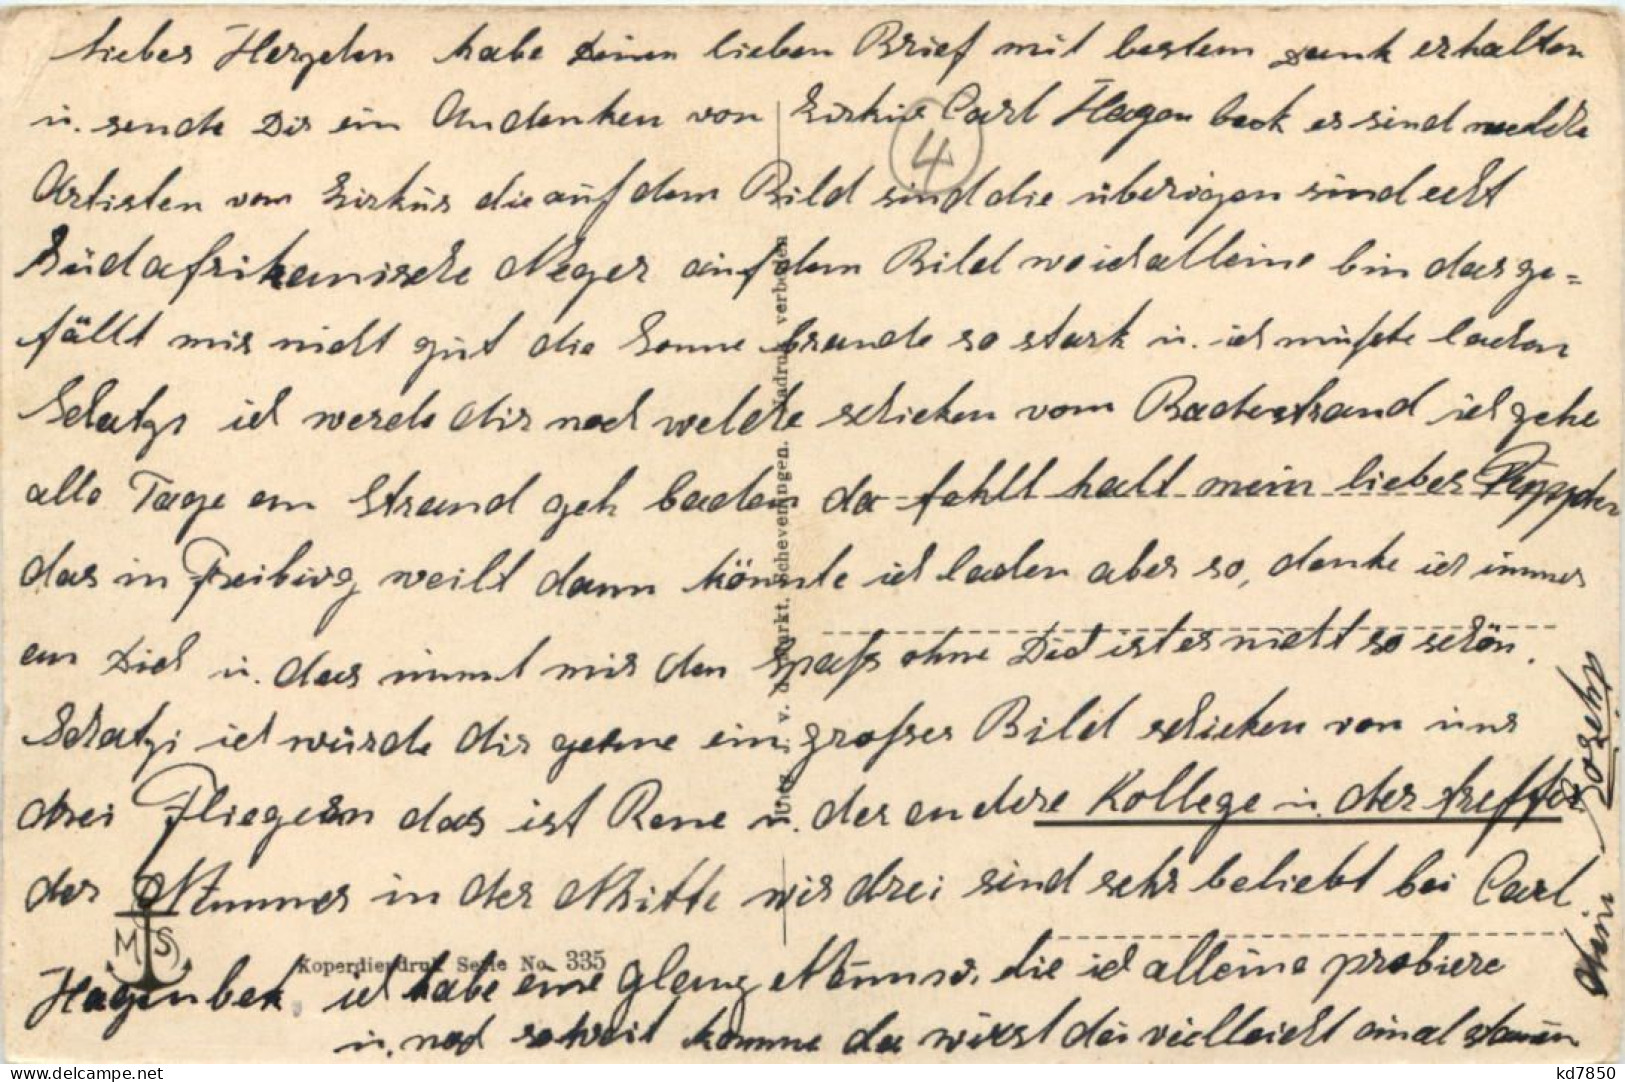 liebes Herzchen habe Deinen lieben Brief mit bestem Dank erhalten
u. sende Dir ein Andenken von Zirkus Carl Hagenbeck es sind welche
4
Artisten vom Zirkus die auf dem Bild sind die überigen sind echt
Südafrikanische Neger auf dem Bild wo ich alleine bin das ge=
fällt mir nicht gut die Sonne brande so stark u. ich mußte lachen
Schatzi ich werde dir noch welche schicken vom Badestrand ich gehe
alle Tage am Strand geh baden da fehlt halt mein liebes Püppchen
das in Freiburg weilt dann könnte ich lachen aber so, denke ich immer
an Dich u. das nimmt mir den Spaß ohne Dich ist es nicht so schön.
Schatzi ich würde dir gerne ein großes Bild schicken von uns
drei Fliegern das ist Rene u. der andere Kollege u. der
der Nummer in der Mitte wir drei sind sehr beliebt bei Carl
Hagenbek ich habe eine Glanz Numm. die ich alleine probiere
u. noch so weit komme da wirst du vielleicht einmal staunen
M S
Koperdiepdruk Serie No. 335
Uitg. v. d. Markt. Scheveningen. Nadruk verboden
kd7850